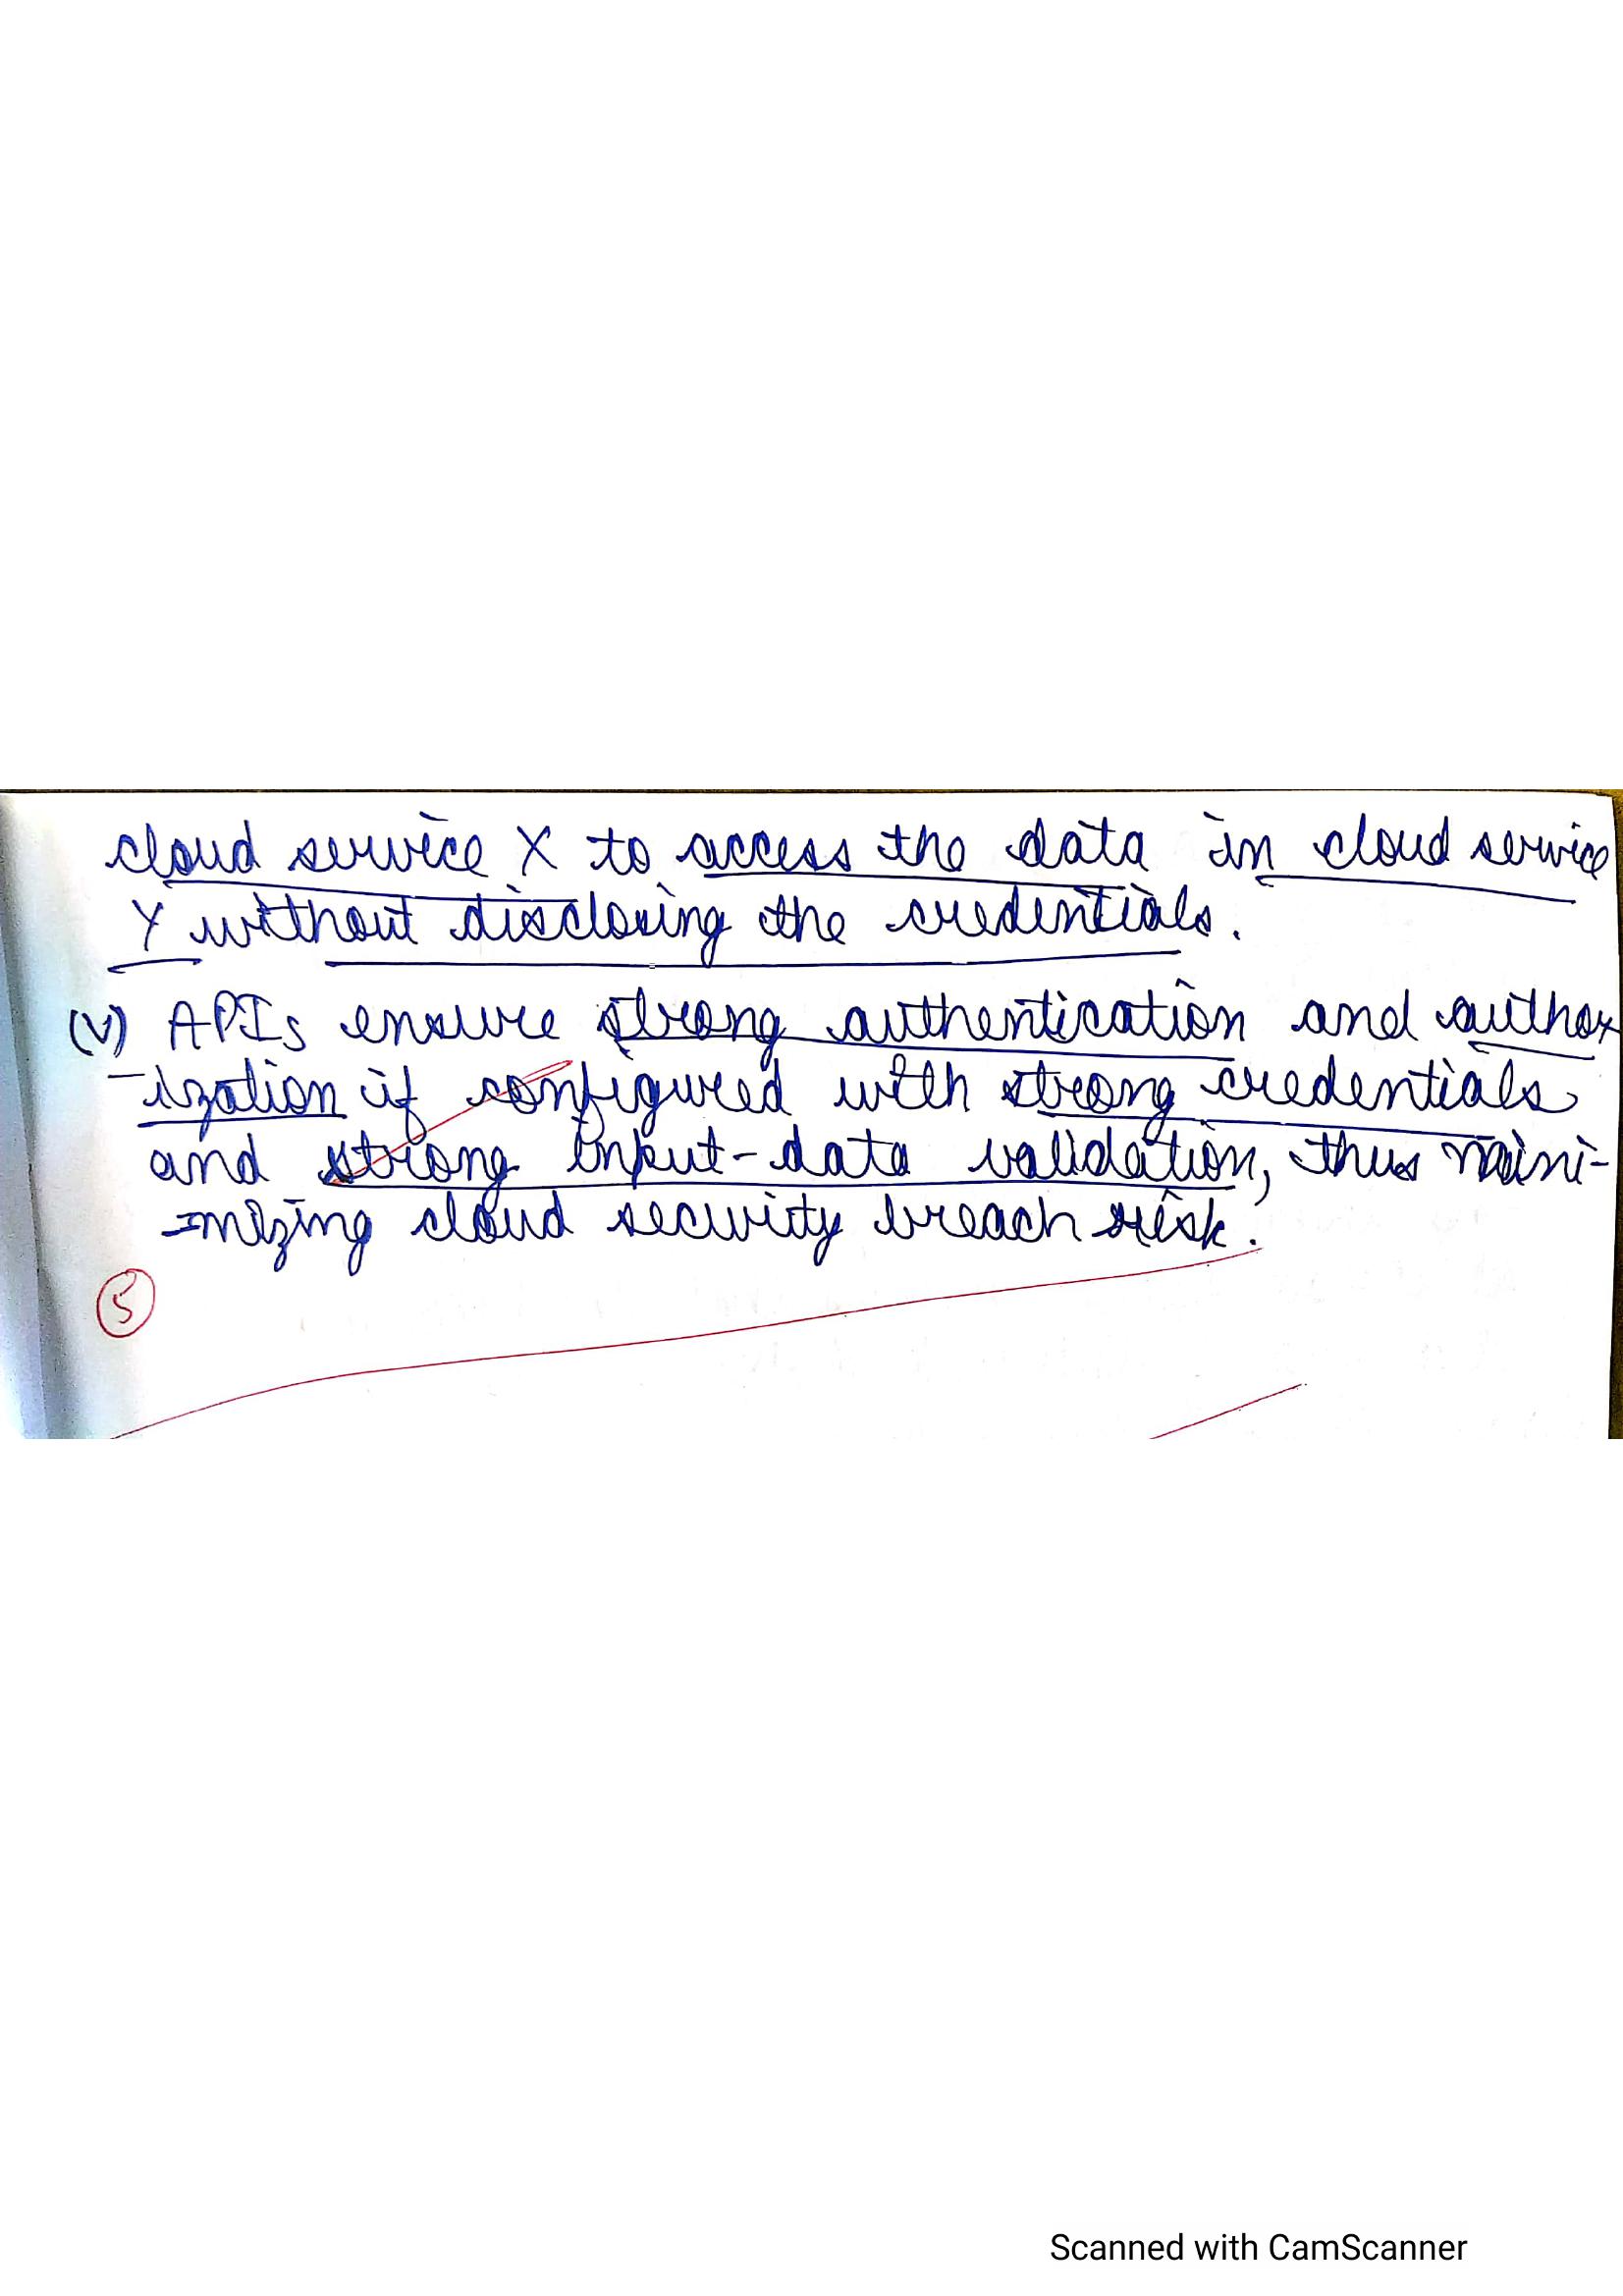 cloud service X to access the data in cloud service
Y without disclosing the credentials.
(V) APIs ensure strong authentication and author
-ization if configured with strong credentials
and strong input-data validation, thus mini-
-mizing cloud security breach risk.
5
Scanned with CamScanner